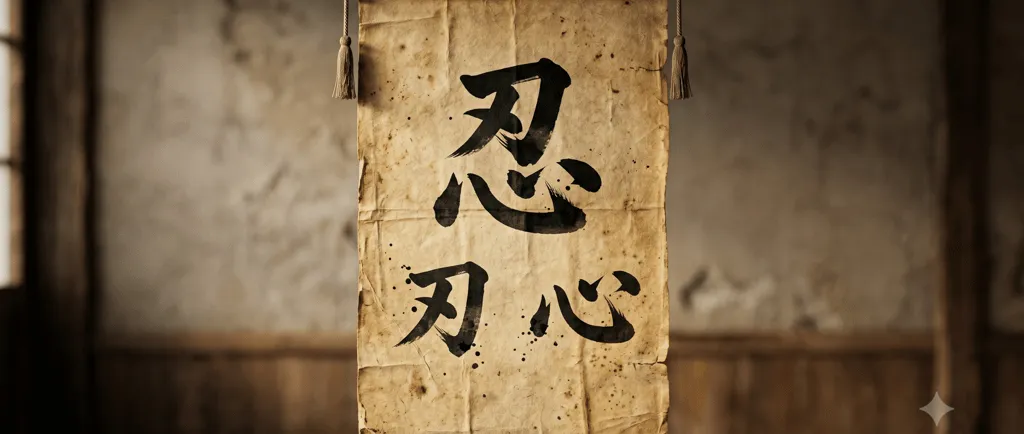 忍
刃 心